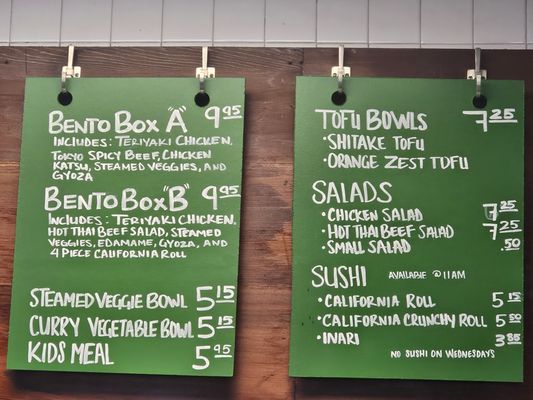 BENTO BOX "A" 9.95
INCLUDES: TERIYAKI CHICKEN,
TOKYO SPICY BEEF, CHICKEN
KATSU, STEAMED VEGGIES, AND
GYOZA
BENTO BOX "B" 9.95
INCLUDES: TERIYAKI CHICKEN,
HOT THAI BEEF SALAD, STEAMED
VEGGIES, EDAMAME, GYOZA, AND
4 PIECE CALIFORNIA ROLL
STEAMED VEGGIE BOWL 5.15
CURRY VEGETABLE BOWL 5.15
KIDS MEAL 5.95
TOFU BOWLS 7.25
• SHITAKE TOFU
• ORANGE ZEST TOFU
SALADS
• CHICKEN SALAD 7.25
• HOT THAI BEEF SALAD 7.25
• SMALL SALAD .50
SUSHI AVAILABLE @ 11AM
• CALIFORNIA ROLL 5.15
• CALIFORNIA CRUNCHY ROLL 5.50
• INARI 3.85
NO SUSHI ON WEDNESDAYS